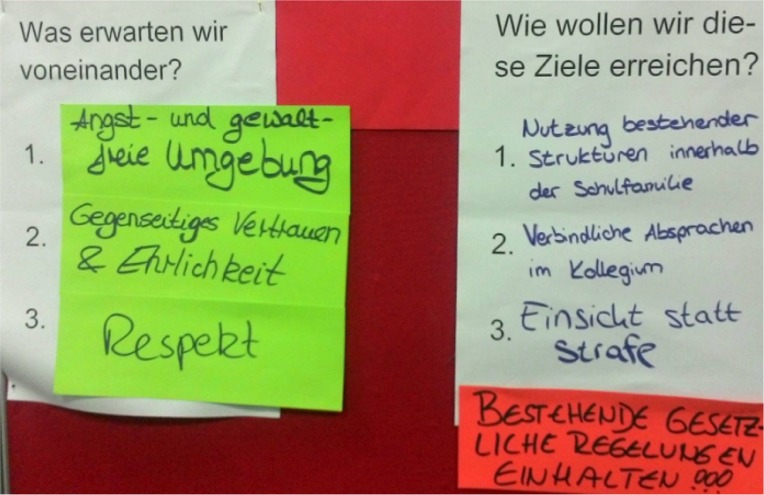 Was erwarten wir
voneinander?
1. Angst- und gewalt-
freie Umgebung
2. Gegenseitiges Vertrauen
& Ehrlichkeit
3. Respekt
Wie wollen wir die-
se Ziele erreichen?
1. Nutzung bestehender
Strukturen innerhalb
der Schulfamilie
2. Verbindliche Absprachen
im Kollegium
3. Einsicht statt
Strafe
BESTEHENDE GESETZ-
LICHE REGELUNGEN
EINHALTEN !!!